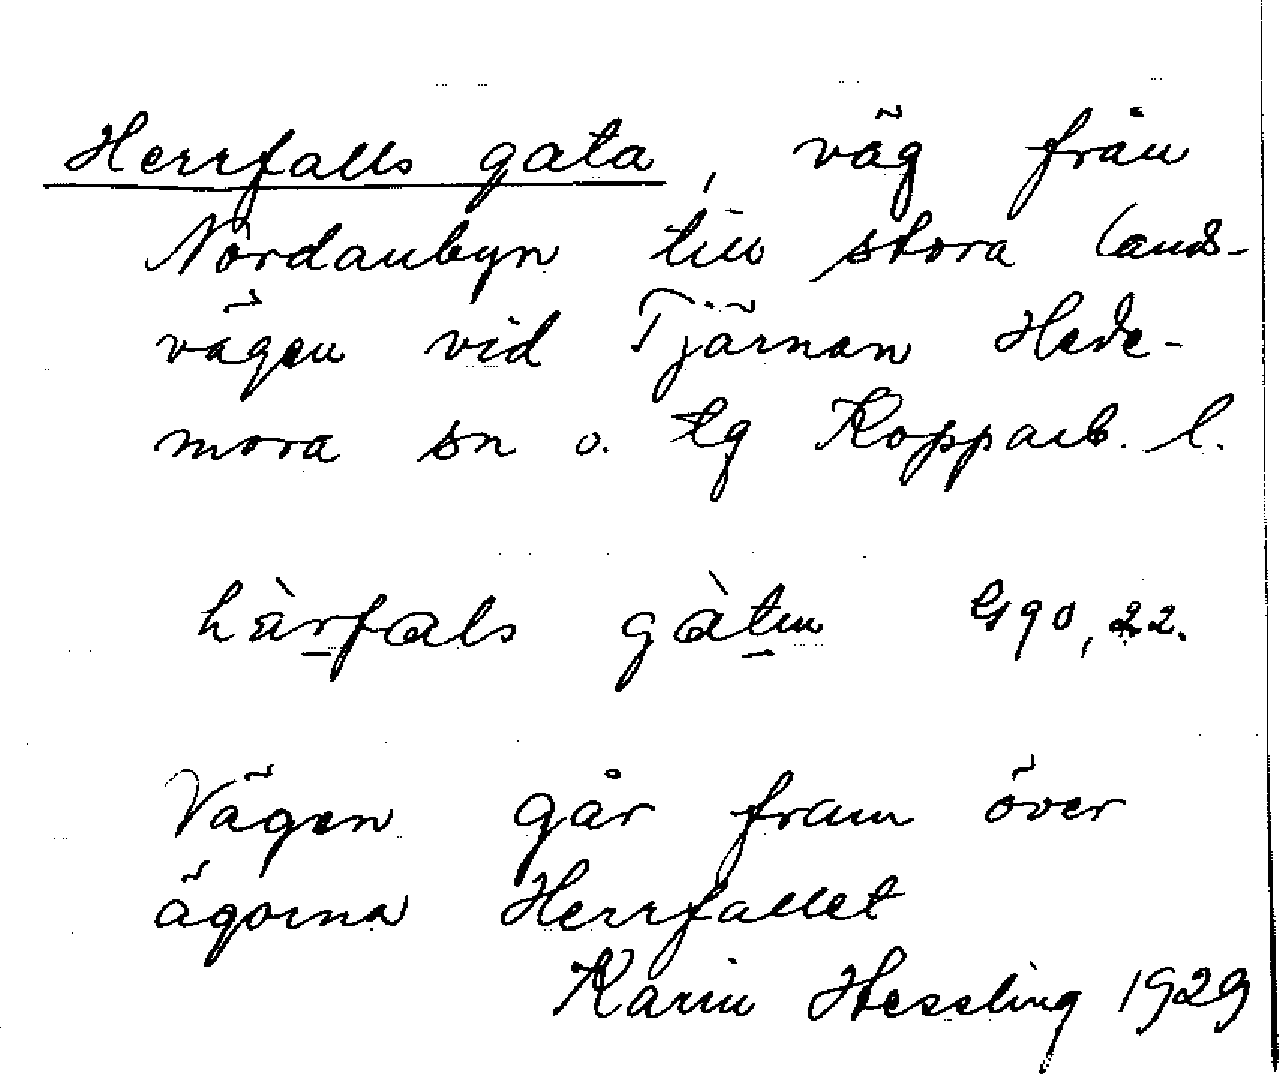 Herrfalls gata, väg från
Nordanbyn till stora lands-
vägen vid Tjärnan Hede-
mora sn o. tg Kopparb. l.
hàrfals gàtn G90, 22.
Vägen går fram över
ägorna Herrfallet
Karin Hessling 1929